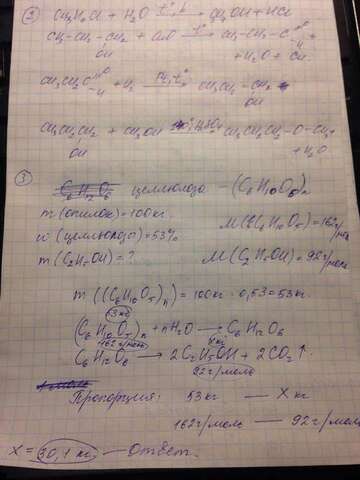 ②
+ H₂O
CH₃OH + HCl
CH₃-CH₂-CH₂ + CuO → CH₃-CH₂-C
OH
+ H₂O + Cu.
CH₃CH₂C + H₂ → CH₃CH₂-CH₂
OH
CH₃CH₂CH₂ + CH₃OH → CH₃CH₂CH₂-O-CH₃
OH
+ H₂O
③
C₆H₁₂O₆ целлюлоза -(C₆H₁₀O₅)n
m(опилок)=100кг.
ω(целлюлоза)=53%
m(C₂H₅OH)=?
M(C₆H₁₀O₅)=162г/моль
M(C₂H₅OH)=92г/моль
m((C₆H₁₀O₅)n)=100кг · 0,53=53кг.
53кг
(C₆H₁₀O₅)n + nH₂O → C₆H₁₂O₆
162г/моль Xкг
C₆H₁₂O₆ → 2C₂H₅OH + 2CO₂↑.
92г/моль
Пропорция: 53кг — Xкг
162г/моль — 92г/моль
X=30,1кг. — Ответ.